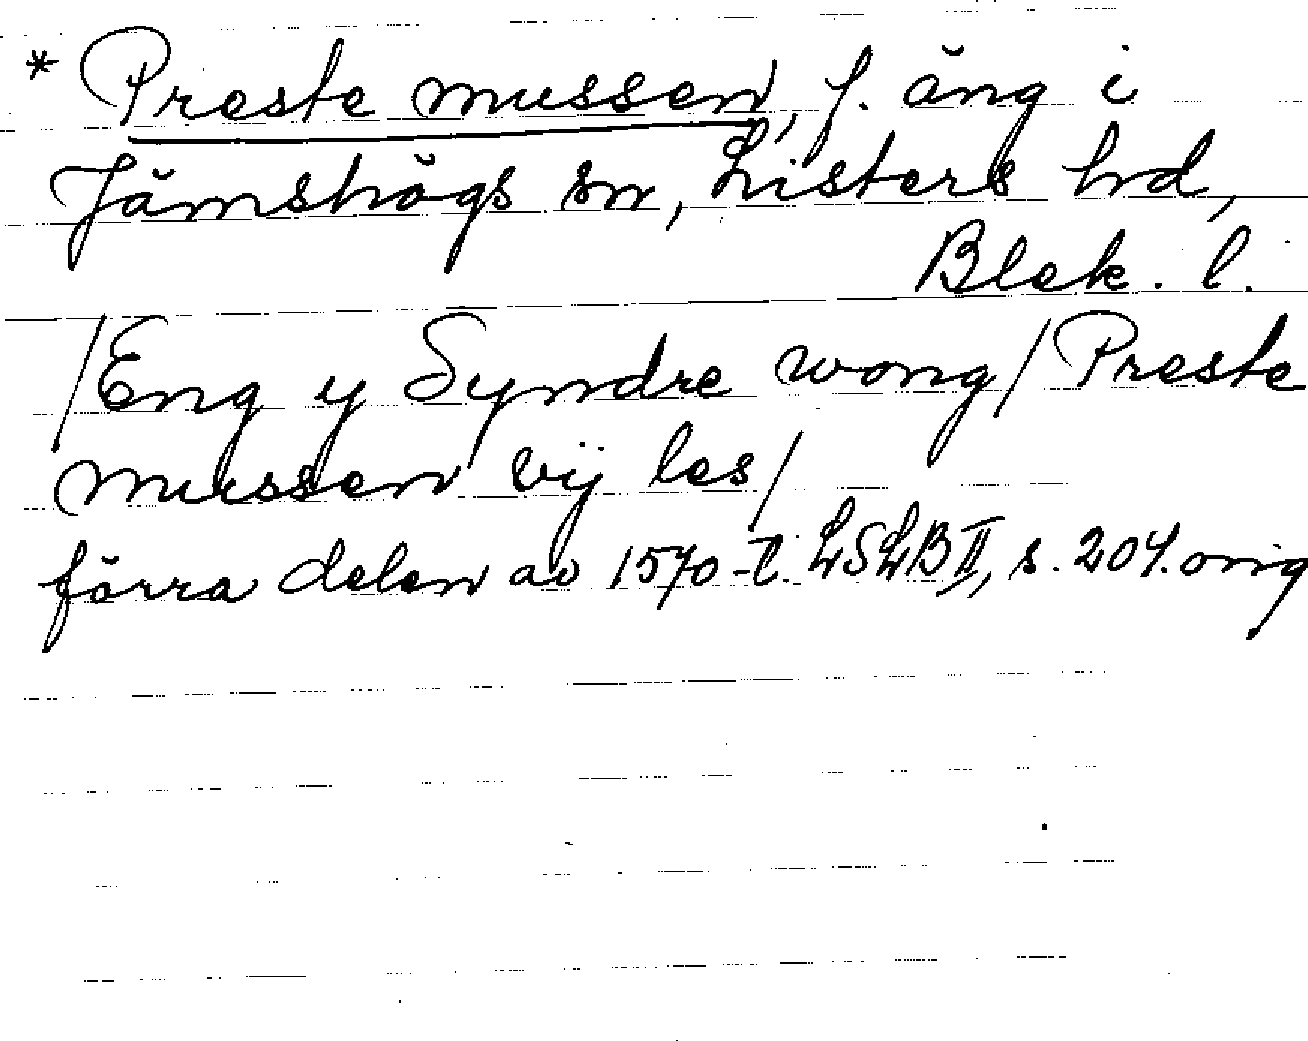 * Preste mussen, f. äng i
Jämshögs sn, Listers hd,
Blek. l.
/Eng y Syndre wong/ Preste
mussen vij les/
förra delen av 1570-t. LSLB II, s. 204. orig